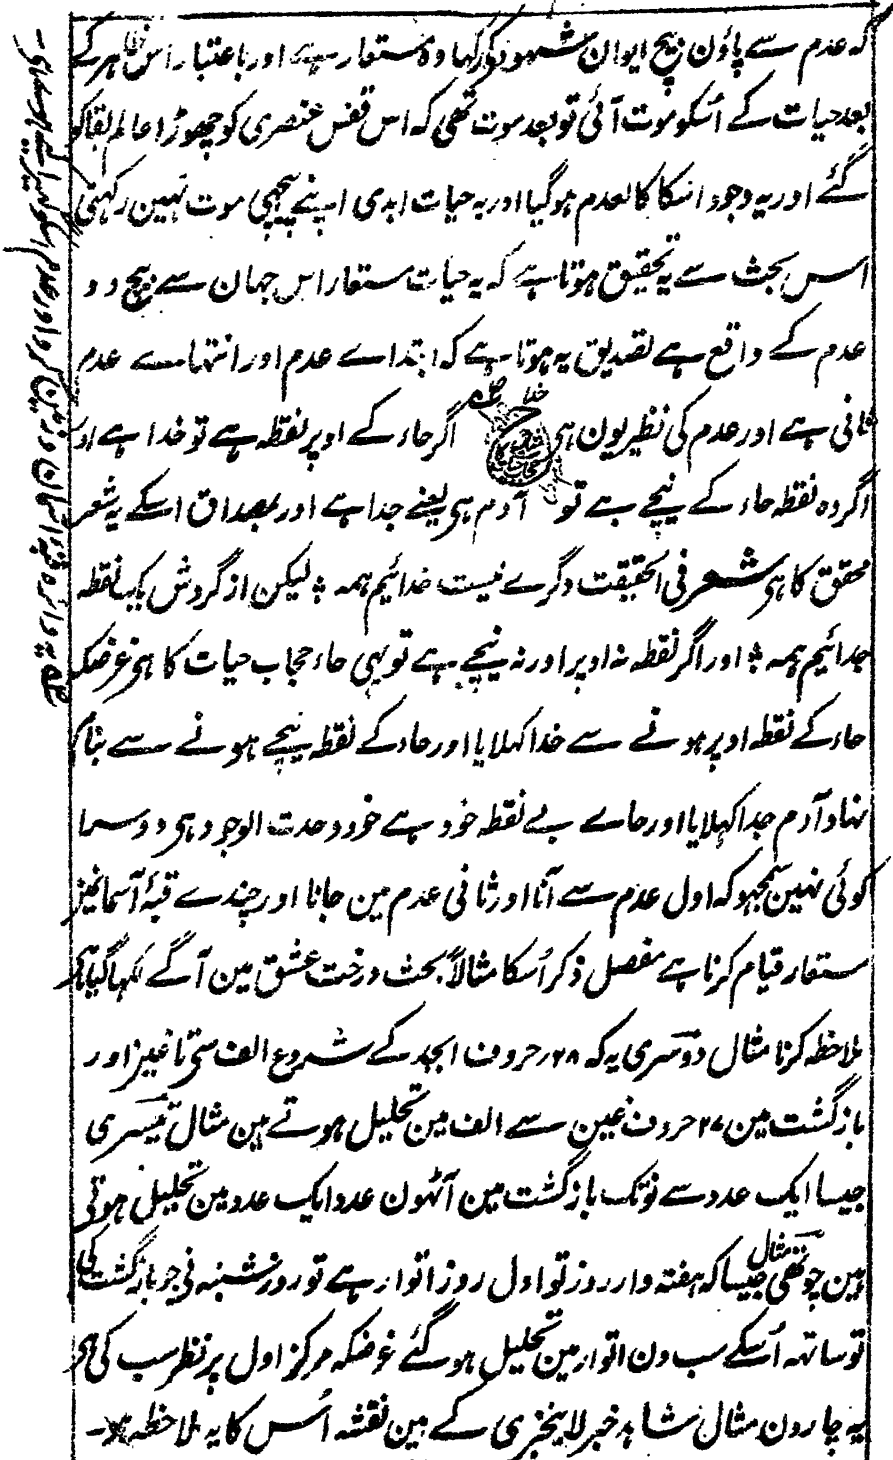 کہ عدم سے پاؤن بیچ ایوان شہود کو رکہا وہ مستعار ہے اور باعتبار اس ظاہر کے
بعد حیات کے اُسکو موت آئی تو بعد موت تھی کہ اس قفس عنصری کو چھوڑا عالم بقا کو
گئے اور یہ وجود اسکا کالعدم ہو گیا اور یہ حیات ابدی اپنے پیچھی موت نہین رکہتی
اس بحث سے یہ تحقیق ہوتا ہے کہ یہ حیات مستعار اس جہان سے بیچ دو
عدم کے واقع ہے تصدیق یہ ہوتا ہے کہ ابتداے عدم اور انتہا ے عدم
ثانی ہے اور عدم کی نظیر یون ہی اگر حاء کے اوپر نقطہ ہے تو خدا ہے اور
اگر وہ نقطہ حاء کے نیچے ہے تو آدم ہی یعنے جدا ہے اور بمصداق اسکے یہ شعر
محقق کا ہی شعر فی الحقیقت دگرے نیست خدائیم ہمہ ؞ لیکن از گردش یک نقطہ
جدائیم ہمہ ؞ اور اگر نقطہ نہ اوپر اور نہ نیچے ہے تو یہی حاء حجاب حیات کا ہی غرضکہ
حاء کے نقطہ اوپر ہونے سے خدا کہلایا اور حاء کے نقطہ نیچے ہونے سے بنام
نہاد آدم جدا کہلایا اور حاے بے نقطہ خود ہے خود وحدت الوجود ہی دوسرا
کوئی نہین سمجہو کہ اول عدم سے آنا اور ثانی عدم مین جانا اور چندے قبۂ آسمانمیز
مستعار قیام کرنا ہے مفصل ذکر اُسکا مثالاً بحث درخت عشق مین آگے لکہا گیا ہی
ملاحظہ کرنا مثال دوسری یہ کہ ۲۸ حروف ابجد کے شروع الف سی تا غین اور
بازگشت مین ۲۷ حروف غین سے الف مین تحلیل ہوتے ہین مثال تیسری
جیسا ایک عدد سے نو تک بازگشت مین آٹھون عدد ایک عدد مین تحلیل ہوتی
ہین چوتھی مثال جیسا کہ ہفتہ وار روز تو اول روز اتوار ہے تو روز شنبہ نی جو بازگشت کی
تو ساتہہ اُسکے سب دن اتوار مین تحلیل ہو گئے غرضکہ مرکز اول پر نظر سب کی ہی
یہ چارون مثال شاہد خبر لا یتجزی کے ہین نقشہ اُس کا یہ ملاحظہ ہو۔